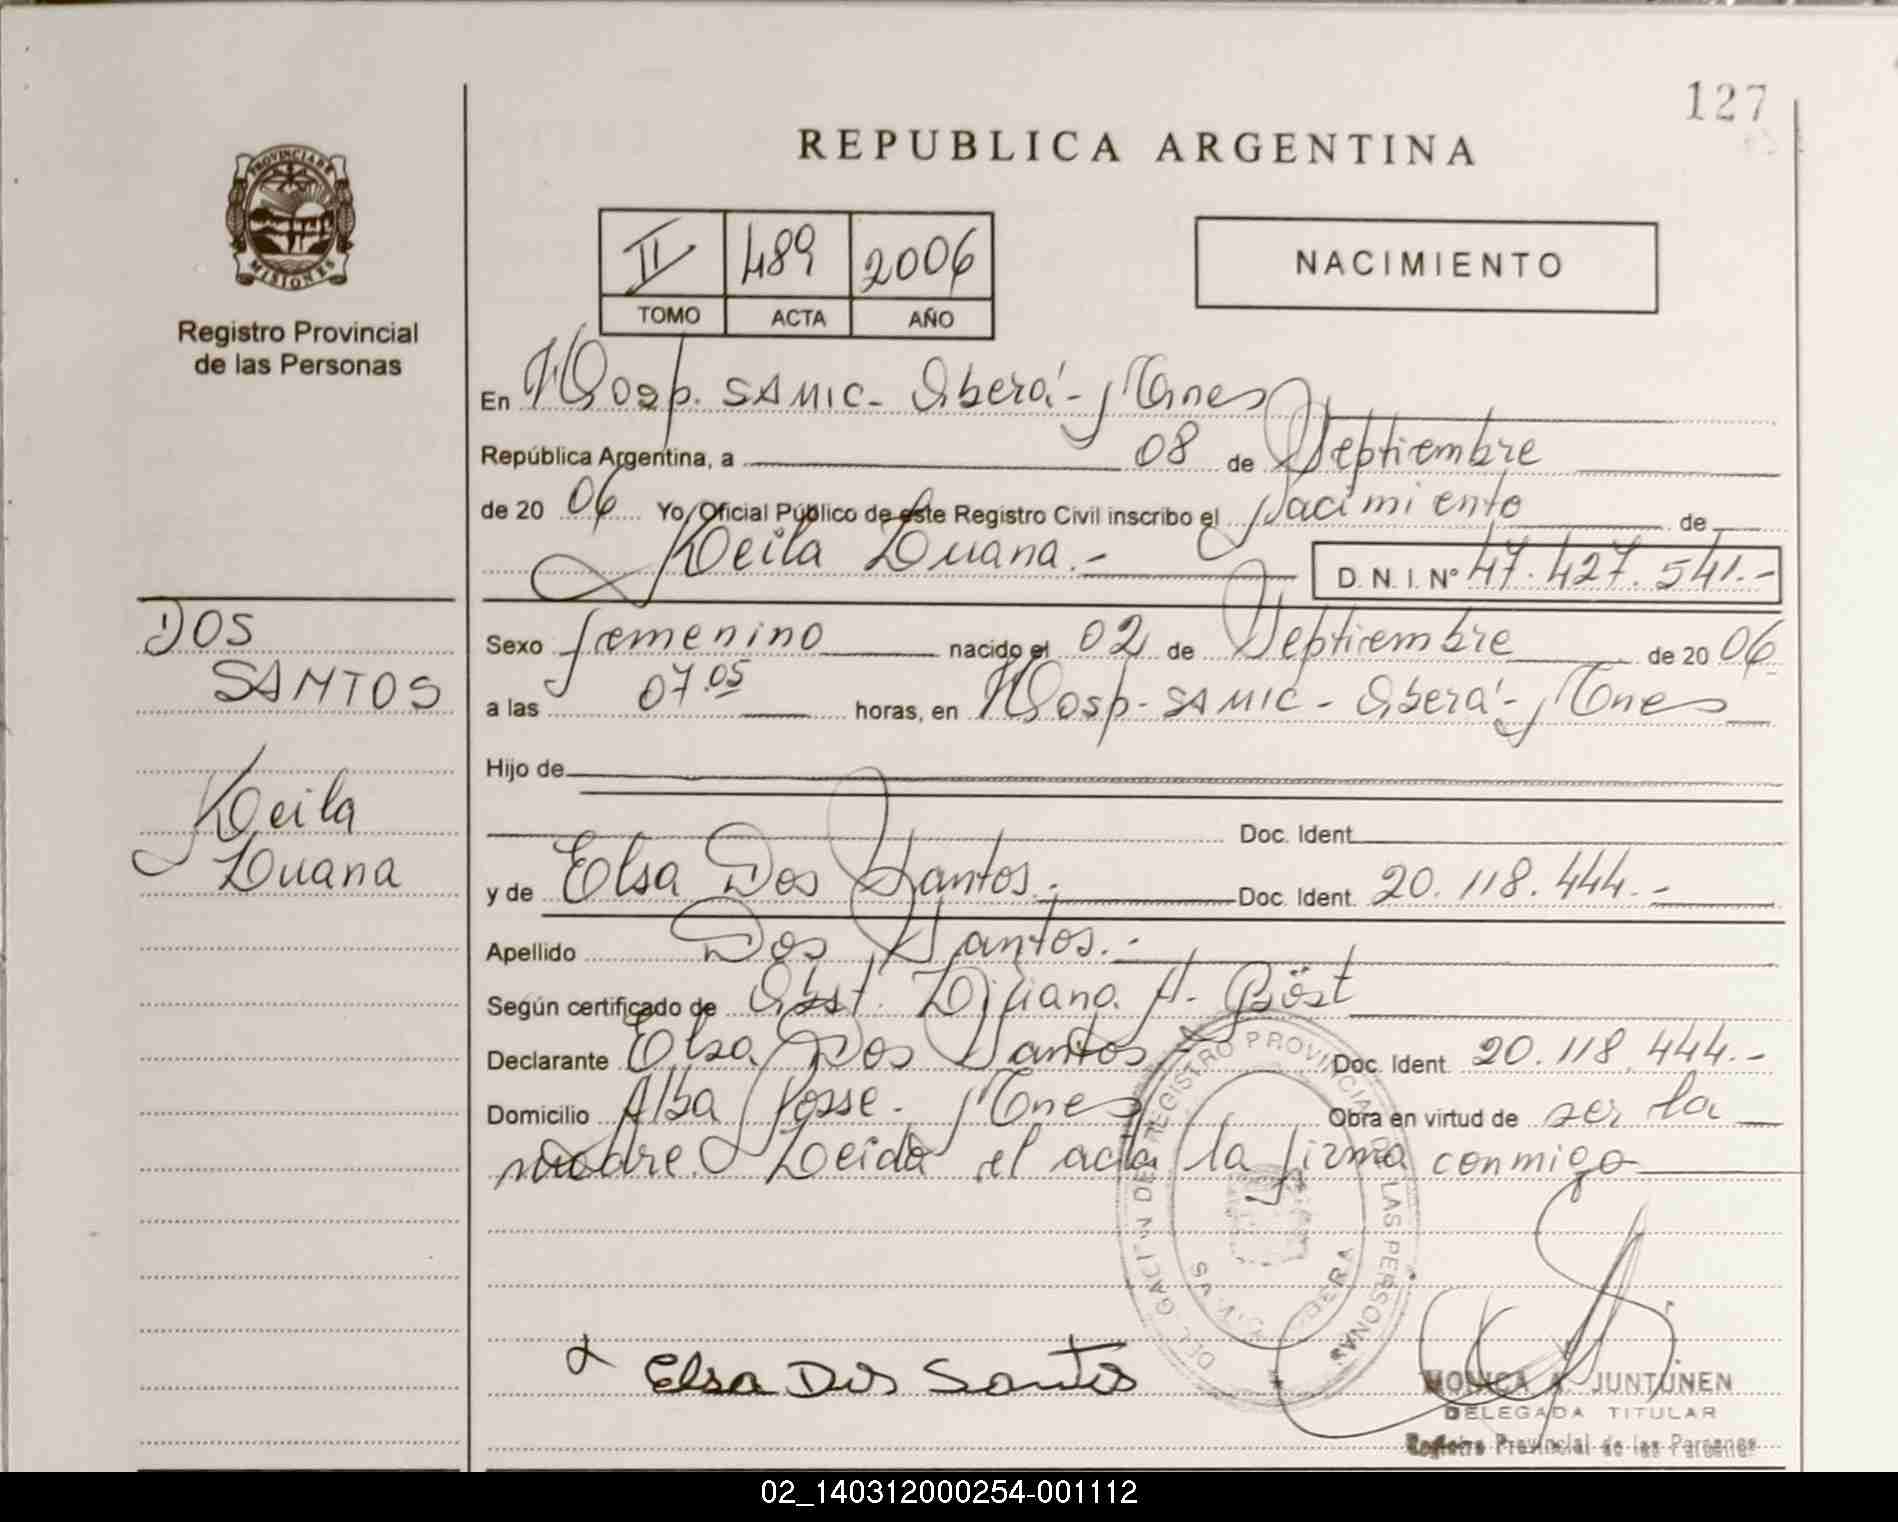 127
REPUBLICA ARGENTINA
PROVINCIA DE
MISIONES
Registro Provincial
de las Personas
II 489 2006
TOMO ACTA AÑO
NACIMIENTO
En Hosp. SAMIC - Oberá - Mnes
República Argentina, a 08 de Septiembre
de 20 06 Yo, Oficial Público de este Registro Civil inscribo el Nacimiento de
Keila Luana.- D. N. I. N° 47.427.541.-
DOS
SANTOS
Keila
Luana
Sexo femenino nacido el 02 de Septiembre de 20 06
a las 07.05 horas, en Hosp - SAMIC - Oberá - Mnes
Hijo de
Doc. Ident.
y de Elsa Dos Santos.- Doc. Ident. 20.118.444.-
Apellido Dos Santos.-
Según certificado de Obst. Liliana A. Böst
Declarante Elsa Dos Santos - Doc. Ident. 20.118.444.-
Domicilio Alba Posse - Mnes Obra en virtud de ser la
madre. Leida el acta la firma conmigo
REGISTRO PROVINCIAL DE LAS PERSONAS
Elsa Dos Santos
MONICA A. JUNTUNEN
DELEGADA TITULAR
Registro Provincial de las Personas
02_140312000254-001112